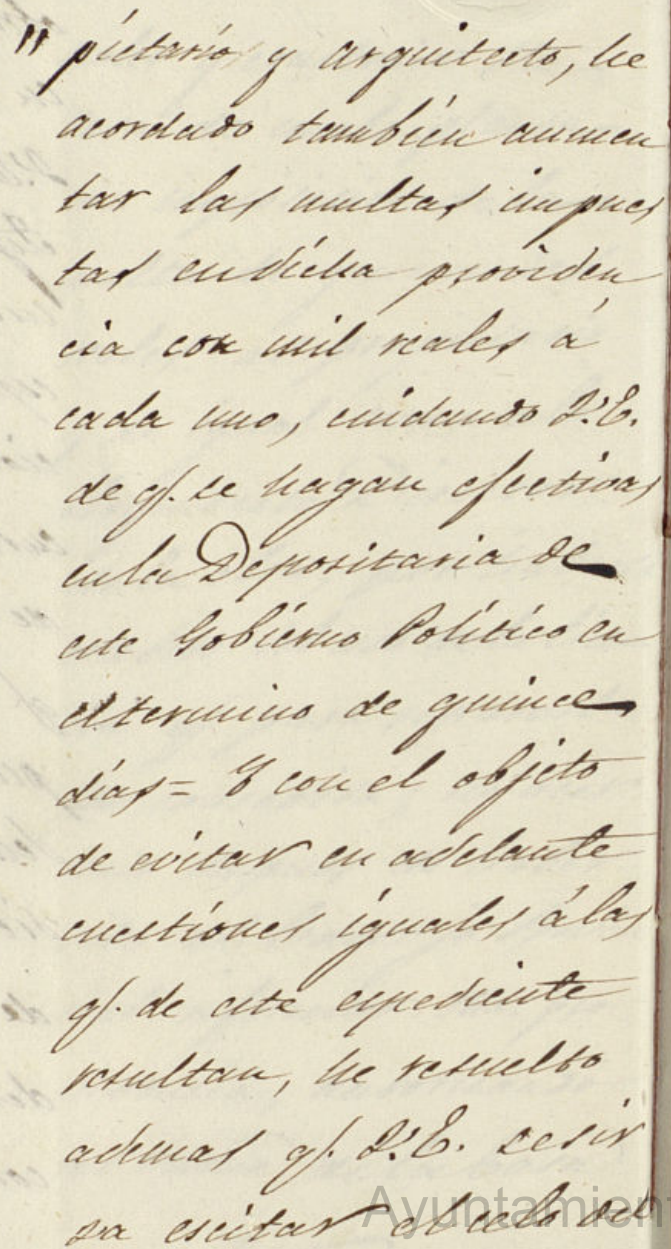 " pietario y arquitecto, he
acordado tambien aumen
tar las multas impues
tas en dicha providen
cia con mil reales á
cada uno, cuidando V.E.
de q.e se hagan efectivas
en la Depositaria de
este Gobierno Politico en
el termino de quince
dias = Y con el objeto
de evitar en adelante
cuestiones iguales á las
q.e de este espediente
resultan, he resuelto
ademas q.e V.E. se sir
va escitar el celo del
Ayuntamien